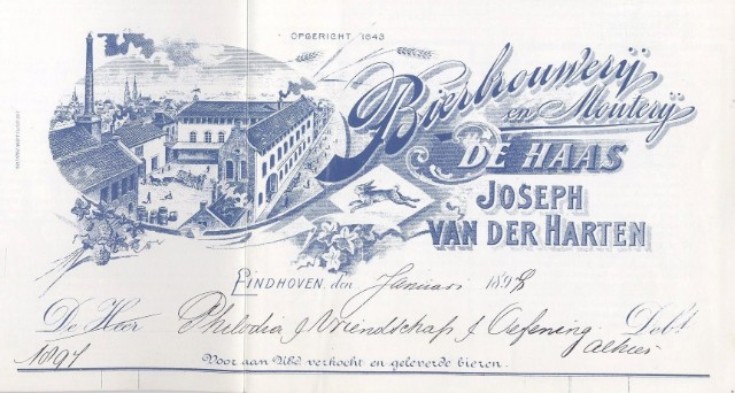 OPGERICHT 1843
Bierbrouwerij
en Mouterij
DE HAAS
JOSEPH
VAN DER HARTEN
EINDHOVEN, den Januari 1898
De Heer Philodia & Vriendschap & Oefening Debt
alhier
1897
Voor aan UEd verkocht en geleverde bieren.